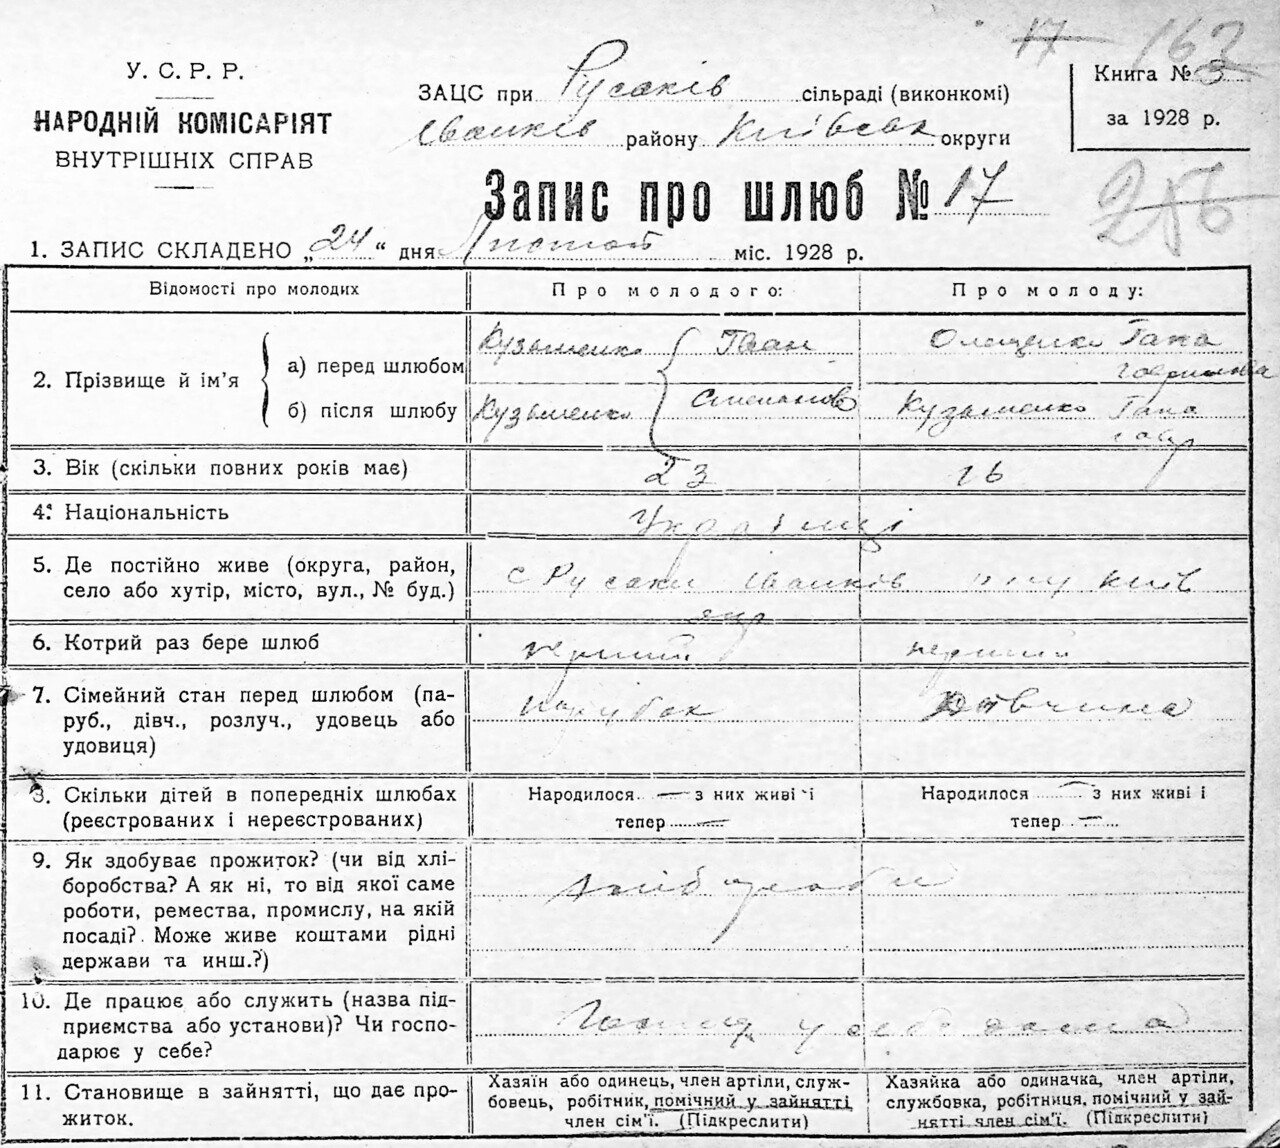 17 163
У. С. Р. Р.
НАРОДНІЙ КОМІСАРІЯТ
ВНУТРІШНІХ СПРАВ
ЗАЦС при Русаків сільраді (виконкомі)
Іванків району Київськ округи
Книга № 3
за 1928 р.
Запис про шлюб № 17
256
1. ЗАПИС СКЛАДЕНО „24“ дня Листопад міс. 1928 р.
Відомості про молодих Про молодого: Про молоду:
2. Прізвище й ім’я
а) перед шлюбом Кузьменко Іван Олещенко Гапка
б) після шлюбу Кузьменко Степанов Кузьменко Гапка
3. Вік (скільки повних років має) 23 16
4. Національність Українці
5. Де постійно живе (округа, район,
село або хутір, місто, вул., № буд.) с Русаки Іванків р-ну Київ
окр
6. Котрий раз бере шлюб перший перший
7. Сімейний стан перед шлюбом (па-
руб., дівч., розлуч., удовець або
удовиця) парубок дівчина
8. Скільки дітей в попередніх шлюбах
(реєстрованих і нереєстрованих)
Народилося — з них живі і
тепер —
Народилося — з них живі і
тепер —
9. Як здобуває прожиток? (чи від хлі-
боробства? А як ні, то від якої саме
роботи, ремества, промислу, на якій
посаді? Може живе коштами рідні
держави та инш.?)
10. Де працює або служить (назва під-
приємства або установи)? Чи госпо-
дарює у себе? у себе дома
11. Становище в зайнятті, що дає про-
житок.
Хазяїн або одинець, член артіли, служ-
бовець, робітник, помічний у зайнятті
член сім’ї. (Підкреслити)
Хазяйка або одиначка, член артіли,
службовка, робітниця, помічний у зай-
нятті член сім’ї. (Підкреслити)